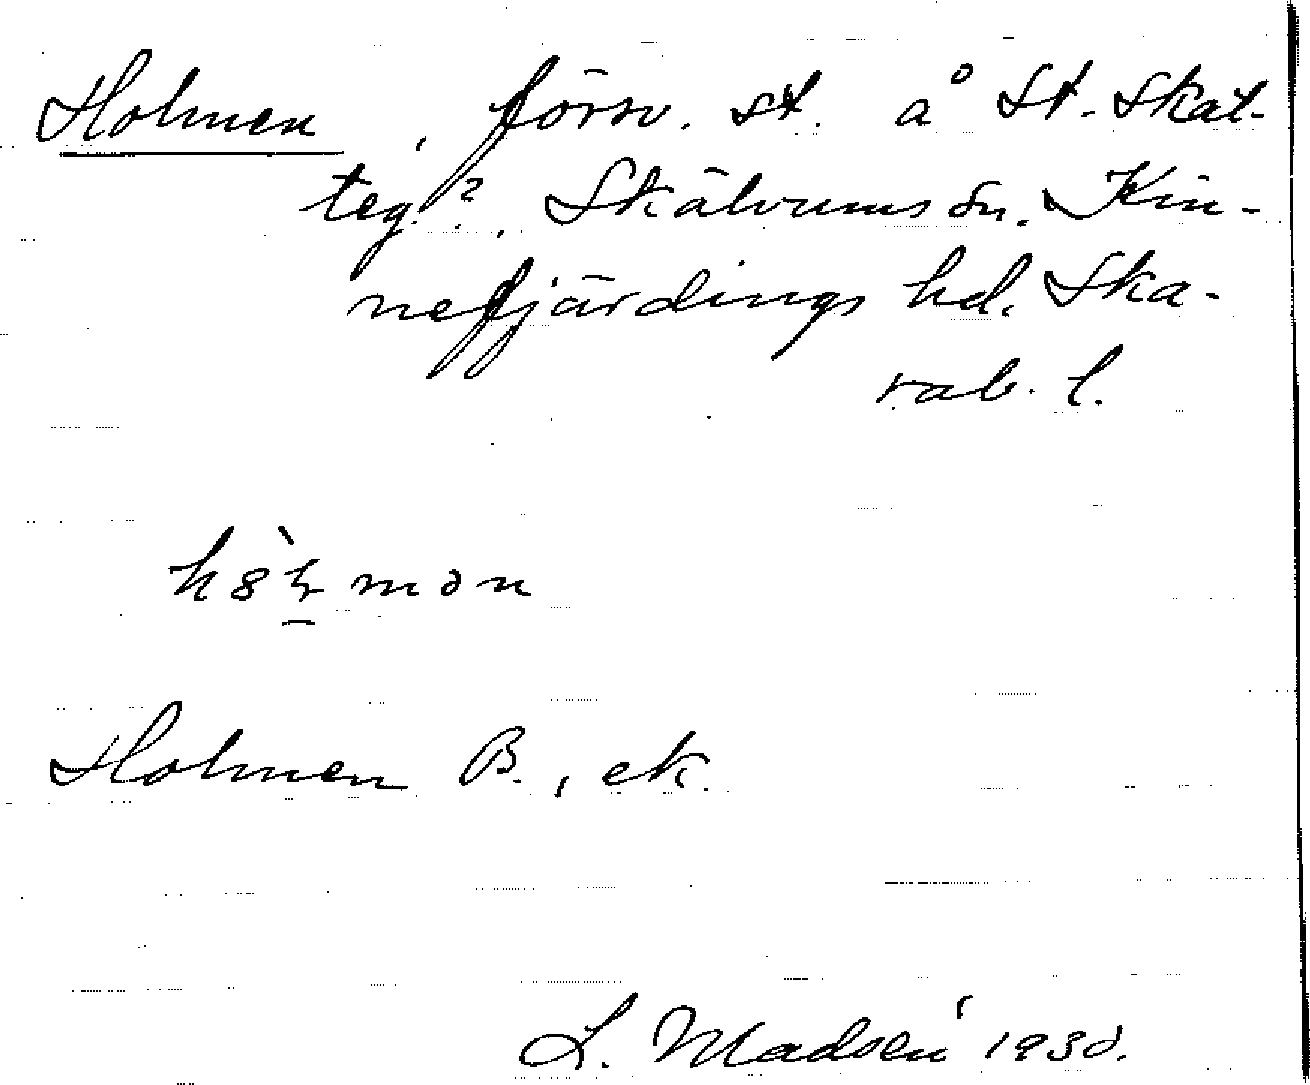 Holmen, försv. st. å St. Skat-
teg.?, Skälvums sn. Kin-
nefjärdings hd. Ska-
rab. l.
Holmen B., ek.
L. Madsén 1930.